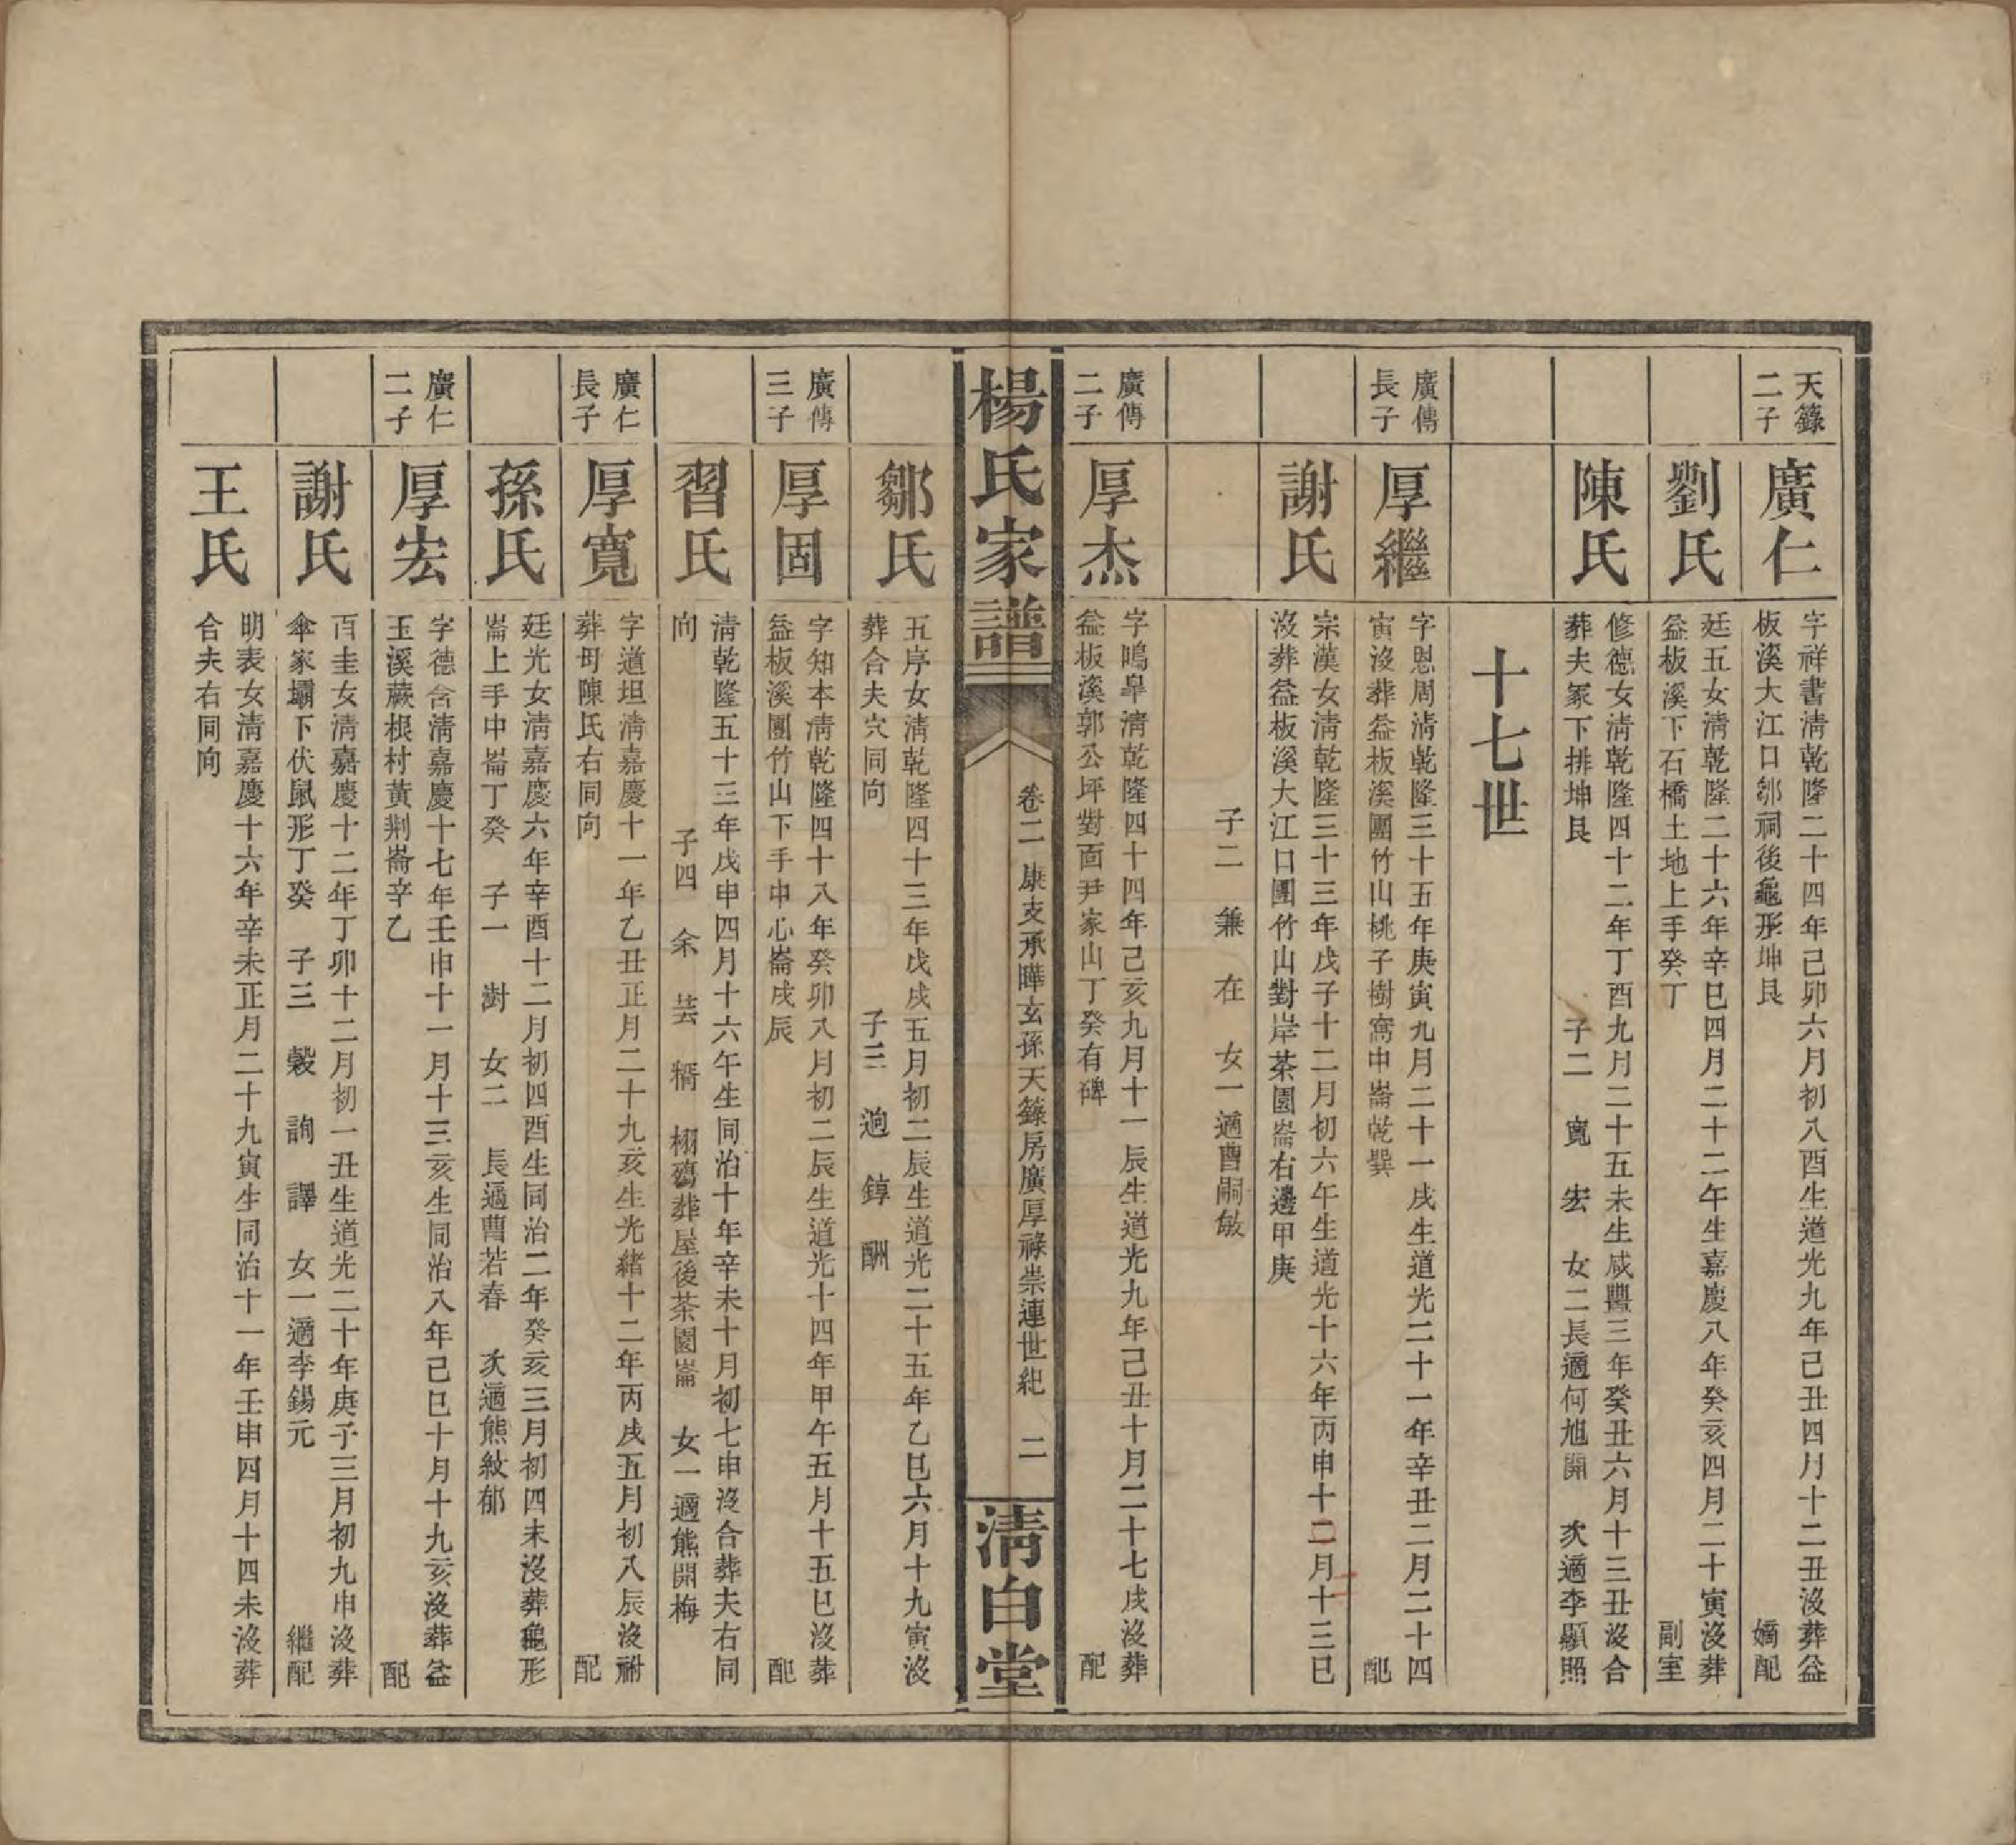 天籙
二子
廣仁
字祥書淸乾隆二十四年己卯六月初八酉生道光九年己丑四月十二丑沒葬益
板溪大江口邹祠後龜形坤艮　嫡配
劉氏
廷五女淸乾隆二十六年辛巳四月二十二午生嘉慶八年癸亥四月二十寅沒葬
益板溪下石橋土地上手癸丁　副室
陳氏
修德女淸乾隆四十二年丁酉九月二十五未生咸豐三年癸丑六月十三丑沒合
葬夫冢下排坤艮　子二　寬　宏　女二長適何旭開　次適李顯照
十七世
廣傳
長子
厚繼
字恩周淸乾隆三十五年庚寅九月二十一戌生道光二十一年辛丑二月二十四
寅沒葬益板溪團竹山桃子樹窩中崙乾巽　配
謝氏
宗漢女淸乾隆三十三年戊子十二月初六午生道光十六年丙申十二月十三巳
沒葬益板溪大江口團竹山對岸茶園崙右邊甲庚
子二　兼　在　女一適曹嗣敏
廣傳
二子
厚杰
字鳴皋淸乾隆四十四年己亥九月十一辰生道光九年己丑十月二十七戌沒葬
益板溪郭公坪對面尹家山丁癸有碑　配
楊氏家譜
卷二　庚支承曄玄孫天籙房廣厚祿崇連世紀　二
淸白堂
鄒氏
五序女淸乾隆四十三年戊戌五月初二辰生道光二十五年乙巳六月十九寅沒
葬合夫穴同向　子三　逈　錞　酬
廣傳
三子
厚固
字知本淸乾隆四十八年癸卯八月初二辰生道光十四年甲午五月十五巳沒葬
益板溪團竹山下手中心崙戌辰　配
習氏
淸乾隆五十三年戊申四月十六午生同治十年辛未十月初七申沒合葬夫右同
向　子四　余　芸　稰　栩殤葬屋後茶園崙　女一適熊開梅
廣仁
長子
厚寬
字道坦淸嘉慶十一年乙丑正月二十九亥生光緖十二年丙戌五月初八辰沒祔
葬母陳氏右同向　配
孫氏
廷光女淸嘉慶六年辛酉十二月初四酉生同治二年癸亥三月初四未沒葬龜形
崙上手中崙丁癸　子一　澍　女二　長適曹若春　次適熊紋郁
廣仁
二子
厚宏
字德含淸嘉慶十七年壬申十一月十三亥生同治八年己巳十月十九亥沒葬益
玉溪蕨根村黃荆崙辛乙　配
謝氏
百圭女淸嘉慶十二年丁卯十二月初一丑生道光二十年庚子三月初九申沒葬
傘家壩下伏鼠形丁癸　子三　穀　詢　譯　女一適李錫元　繼配
王氏
明表女淸嘉慶十六年辛未正月二十九寅生同治十一年壬申四月十四未沒葬
合夫右同向